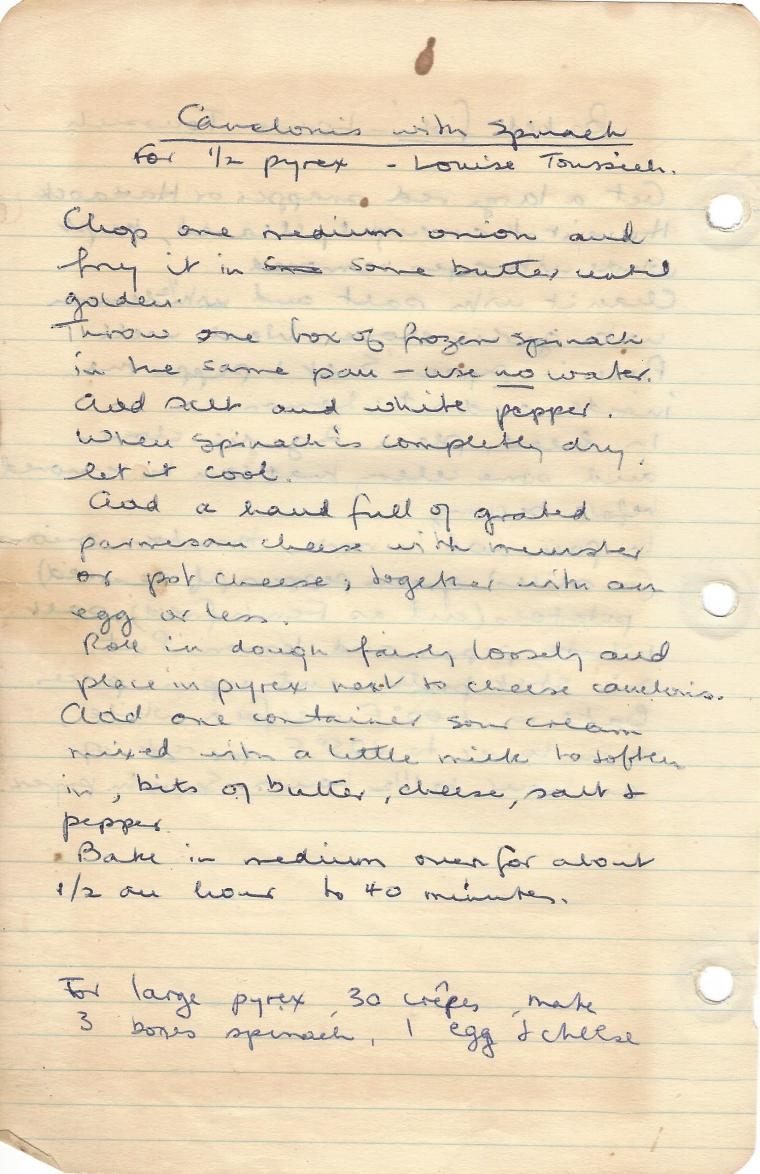 Canelonis with Spinach
For 1/2 pyrex - Louise Toussieh.
Chop one medium onion and
fry it in some some butter until
golden.
Throw one box of frozen spinach
in the same pan - use no water.
Add salt and white pepper.
When spinach is completely dry,
let it cool.
Add a hand full of grated
parmesan cheese with muenster
or pot cheese, together with an
egg or less.
Roll in dough fairly loosely and
place in pyrex next to cheese canelonis.
Add one container sour cream
mixed with a little milk to soften
in, bits of butter, cheese, salt &
pepper.
Bake in medium oven for about
1/2 an hour to 40 minutes.
For large pyrex, 30 crêpes, make
3 boxes spinach, 1 egg & cheese